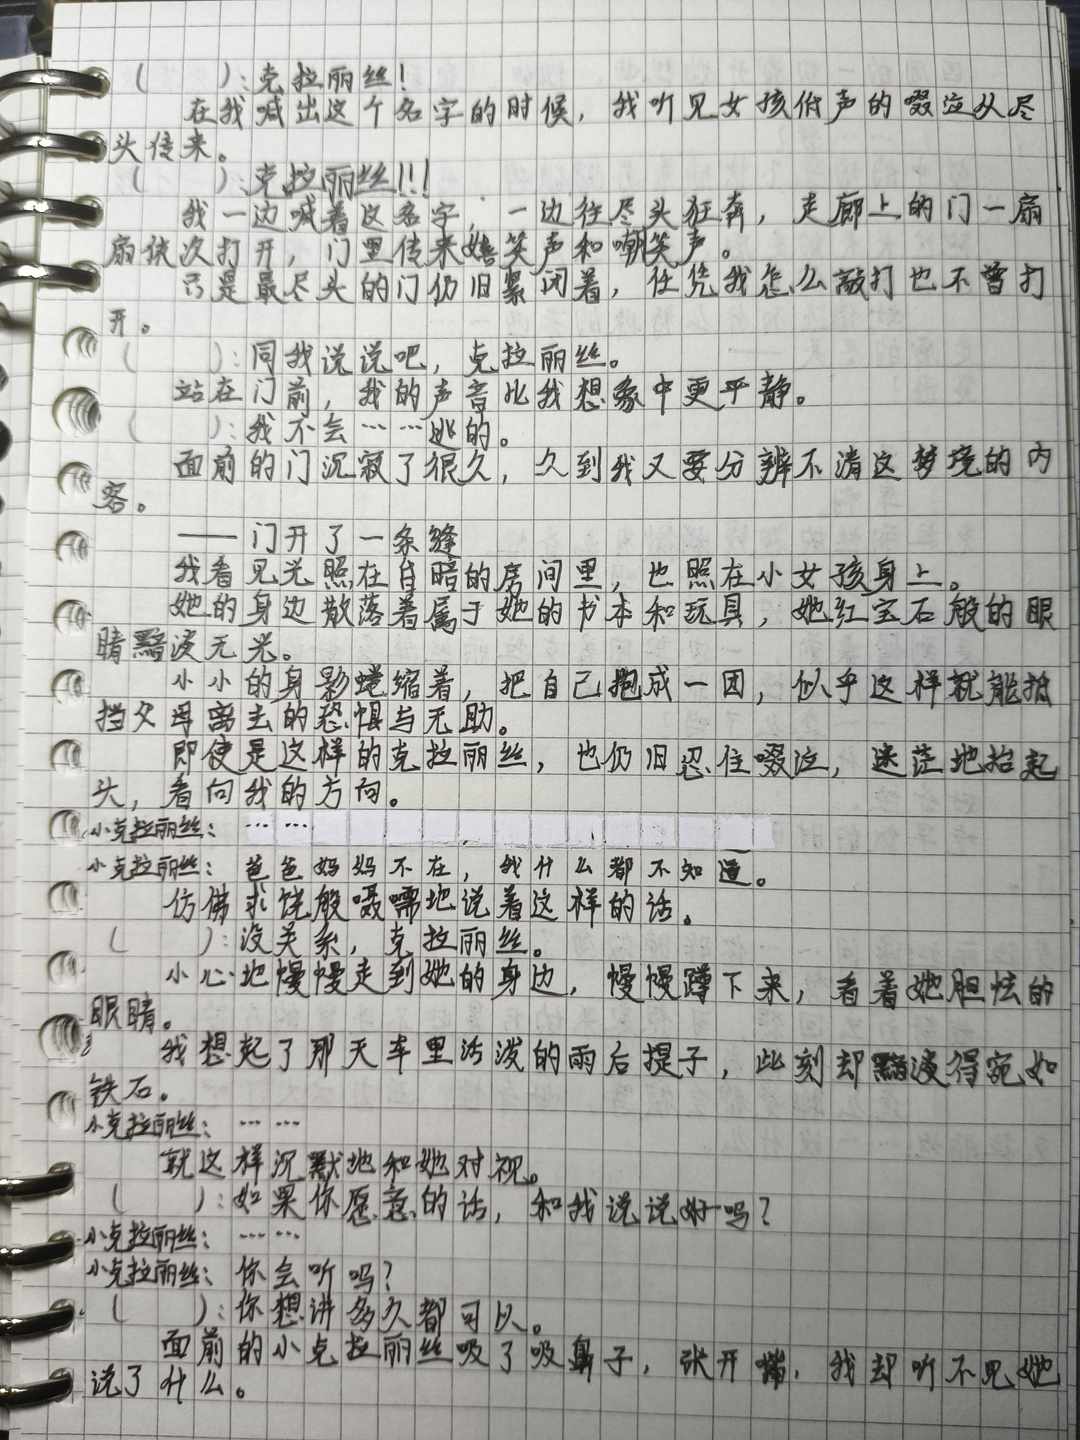 (　　):克拉丽丝!
在我喊出这个名字的时候，我听见女孩低声的啜泣从尽
头传来。
(　　):克拉丽丝!!!
我一边喊着这名字，一边往尽头狂奔，走廊上的门一扇
扇依次打开，门里传来嬉笑声和嘲笑声。
只是最尽头的门仍旧紧闭着，任凭我怎么敲打也不曾打
开。
(　　):同我说说吧，克拉丽丝。
站在门前，我的声音比我想象中更平静。
(　　):我不会……逃的。
面前的门沉寂了很久，久到我又要分辨不清这梦境的内
容。
——门开了一条缝
我看见光照在昏暗的房间里，也照在小女孩身上。
她的身边散落着属于她的书本和玩具，她红宝石般的眼
睛黯淡无光。
小小的身影蜷缩着，把自己抱成一团，似乎这样就能抵
挡父母离去的恐惧与无助。
即使是这样的克拉丽丝，也仍旧忍住啜泣，迷茫地抬起
头，看向我的方向。
小克拉丽丝：……
小克拉丽丝：爸爸妈妈不在，我什么都不知道。
仿佛求饶般嗫嚅地说着这样的话。
(　　):没关系，克拉丽丝。
小心地慢慢走到她的身边，慢慢蹲下来，看着她胆怯的
眼睛。
我想起了那天车里活泼的雨后提子，此刻却黯淡得宛如
铁石。
小克拉丽丝：……
就这样沉默地和她对视。
(　　):如果你愿意的话，和我说说好吗?
小克拉丽丝：……
小克拉丽丝：你会听吗?
(　　):你想讲多久都可以。
面前的小克拉丽丝吸了吸鼻子，张开嘴，我却听不见她
说了什么。